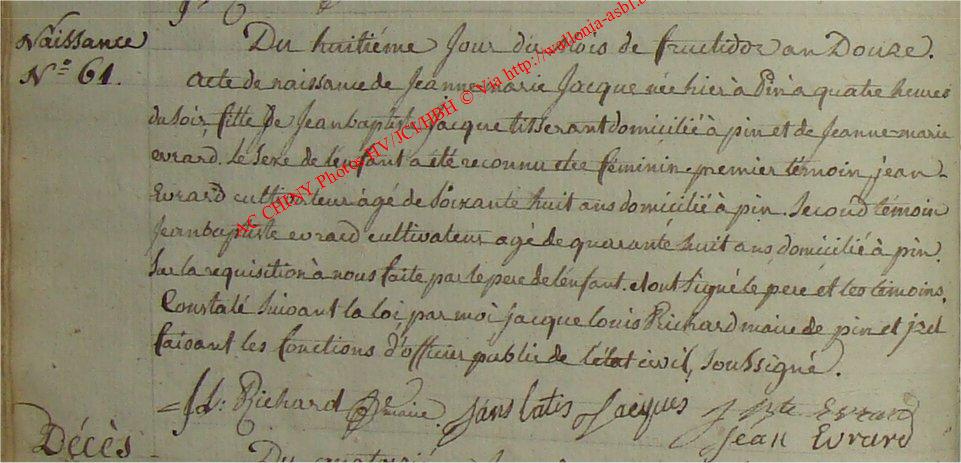 Naissance
N.° 61.
Du huitiéme Jour du mois de fructidor an Douze.
Acte de naissance de Jeanne marie Jacque née hier à Pin a quatre heures
du Soir, fille De Jean baptiste Jacque tisserant domicilié à pin et de Jeanne-marie
evrard. Le Sexe de L'enfant a été reconnu etre féminin. premier témoin jean-
Evrard cultivateur âgé de Soixante huit ans domicilié à pin. Second témoin
Jean baptiste evrard cultivateur agé de quarante huit ans, domicilié à pin.
Sur la requisition à nous faite par le pere de l'enfant. et ont Signé le pere et les témoins,
Constaté Suivant la loi par moi Jacque louis Richard maire de pin et jzel
faisant les fonctions d'officier public de l'état civil, Soussigné.
J L: Richard maire jans batis Jacques J Bte Evrard
jean Evrard
Décès
Du quatrié
AC CHINY Photos HV/JCI/HBH © Via http://wallonia-asbl.b